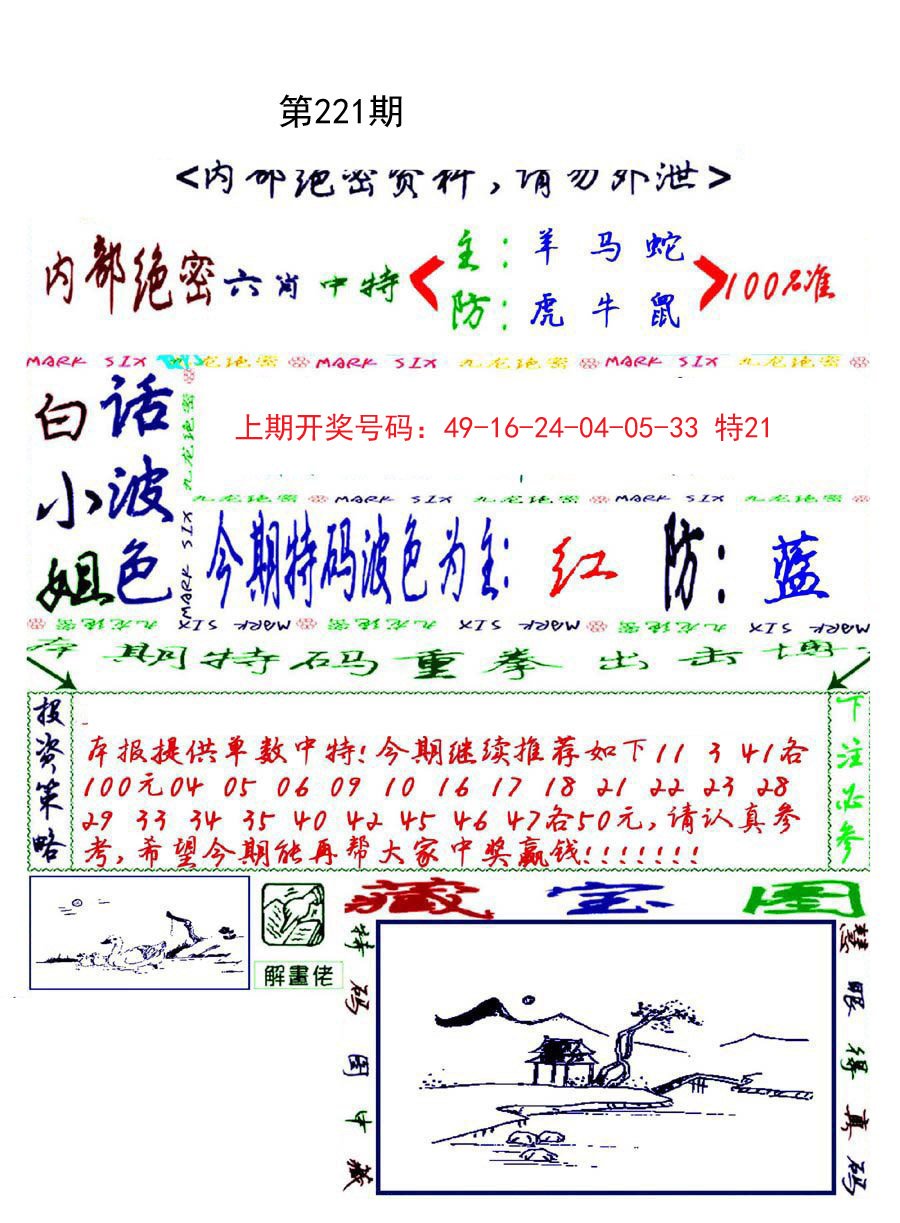 第221期
<内部绝密资料,请勿外泄>
内部绝密六肖中特
主:羊 马 蛇
防:虎 牛 鼠
100%准
MARK SIX 九龙绝密 MARK SIX 九龙绝密 MARK SIX 九龙绝密
白小姐
话波色
九龙绝密
MARK SIX
上期开奖号码：49-16-24-04-05-33 特21
九龙绝密 MARK SIX 九龙绝密 MARK SIX 九龙绝密
今期特码波色为主:红 防:蓝
九龙绝密 MARK SIX 九龙绝密 MARK SIX 九龙绝密 MARK SIX
本期特码重拳出击博
投资策略
本报提供单数中特!今期继续推荐如下11 3 41各
100元04 05 06 09 10 16 17 18 21 22 23 28
29 33 34 35 40 42 45 46 47各50元,请认真参
考,希望今期能再帮大家中奖赢钱!!!!!!!
下注必参
解畫佬
藏宝图
特码图中藏
慧眼得真码